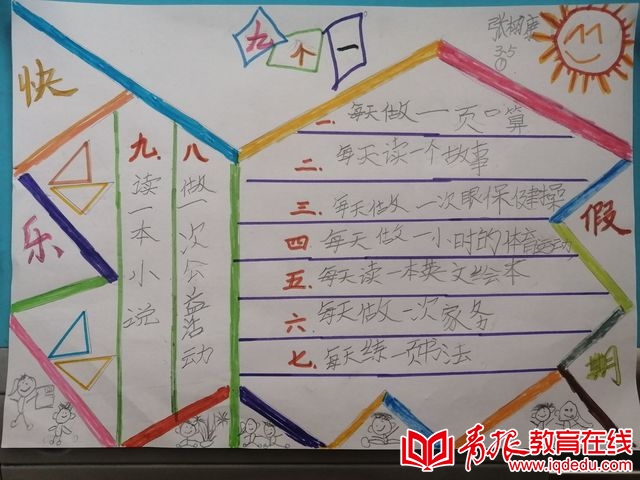 九个一
张
3.5
①
快乐
假期
一、每天做一页口算
二、每天读一个故事
三、每天做一次眼保健操
四、每天做一小时的体育运动
五、每天读一本英文绘本
六、每天做一次家务
七、每天练一页书法
八、做一次公益活动
九、读一本小说
青报教育在线
www.iqdedu.com